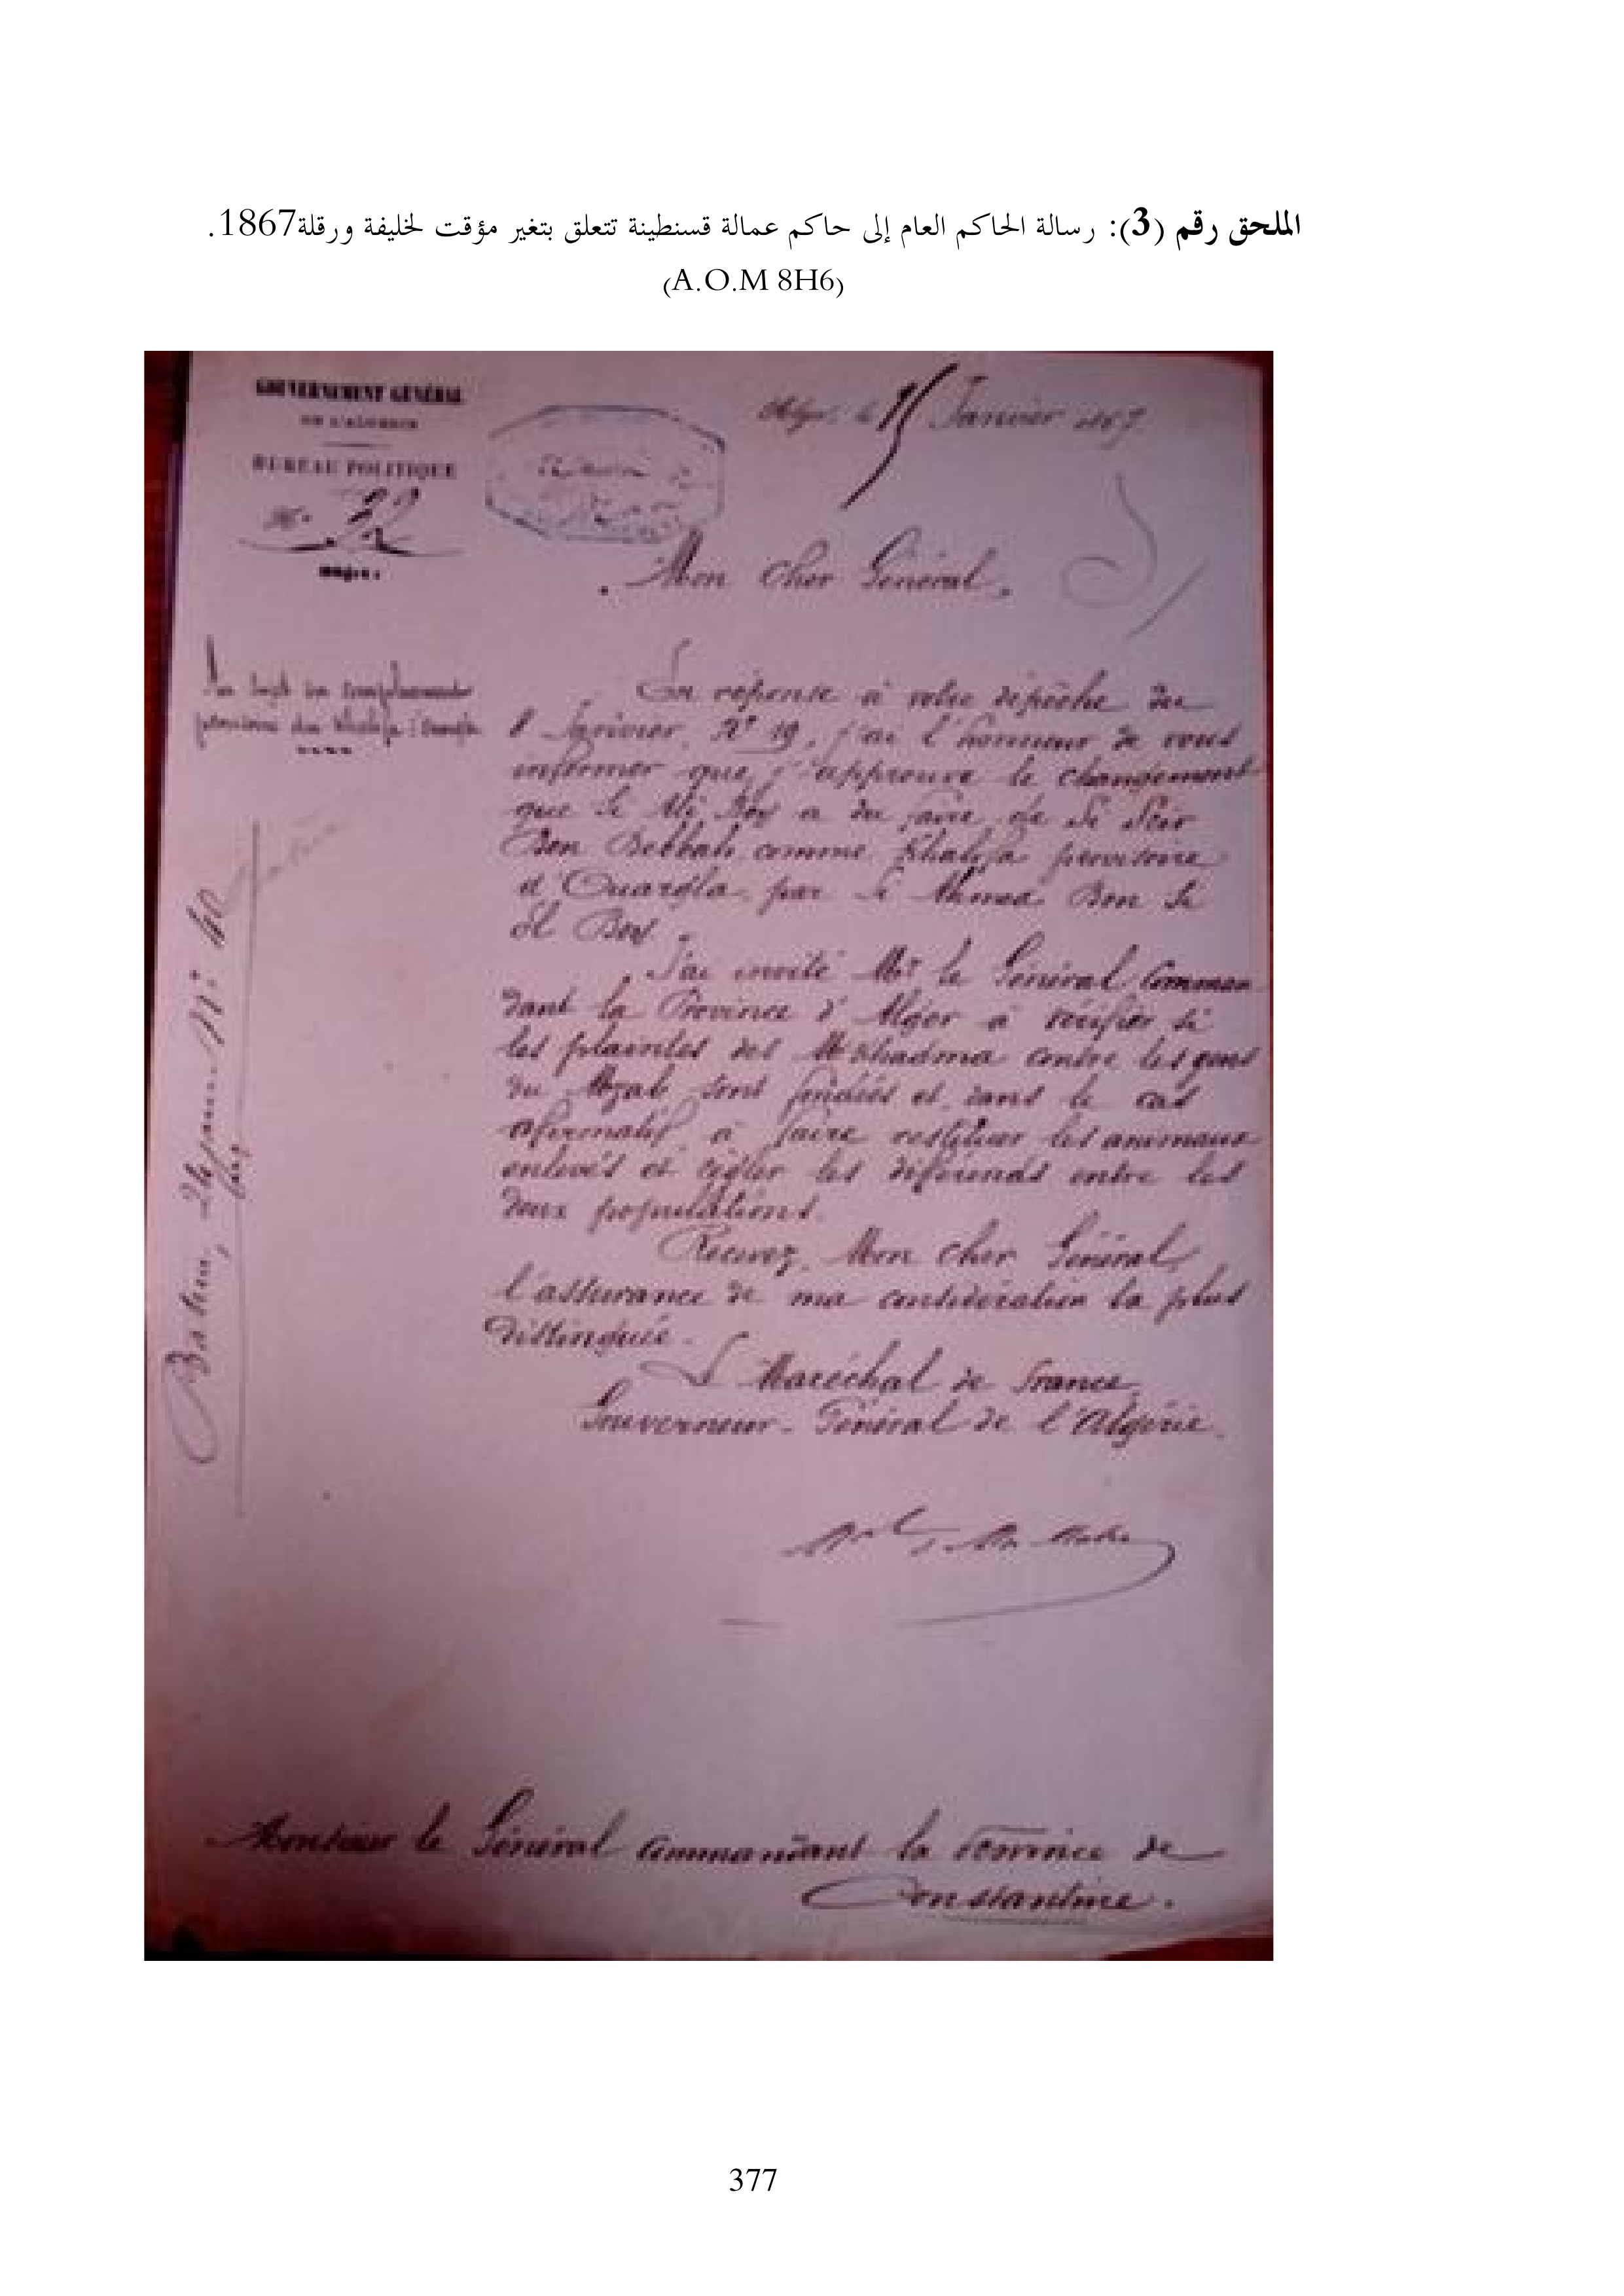 الملحق رقم (3): رسالة الحاكم العام إلى حاكم عمالة قسنطينة تتعلق بتغير مؤقت لخليفة ورقلة1867.
(A.O.M 8H6)
GOUVERNEMENT GÉNÉRAL
DE L'ALGÉRIE
BUREAU POLITIQUE
N°
Alger, le 15 Janvier 1867
Mon cher Général,
En réponse à votre dépêche du
8 Janvier, N° 19, j'ai l'honneur de vous
informer que j'approuve le changement
que Si Ali Bey a du faire de Si
Ben Bebbah comme Khalifa provisoire
d'Ouargla par Si Ahmed Ben Si
El Bey.
J'ai invité Mr le Général Comman
dant la Province d'Alger à vérifier si
les plaintes des Mkhadma contre les gens
du Mzab sont fondées et dans le cas
afirmatif à faire restituer les animaux
enlevés et régler les diférends entre les
deux populations.
Recevez, Mon cher Général,
l'assurance de ma considération la plus
distinguée.
Le Maréchal de France,
Gouverneur-Général de l'Algérie.
Monsieur le Général Commandant la Province de
Constantine.
377